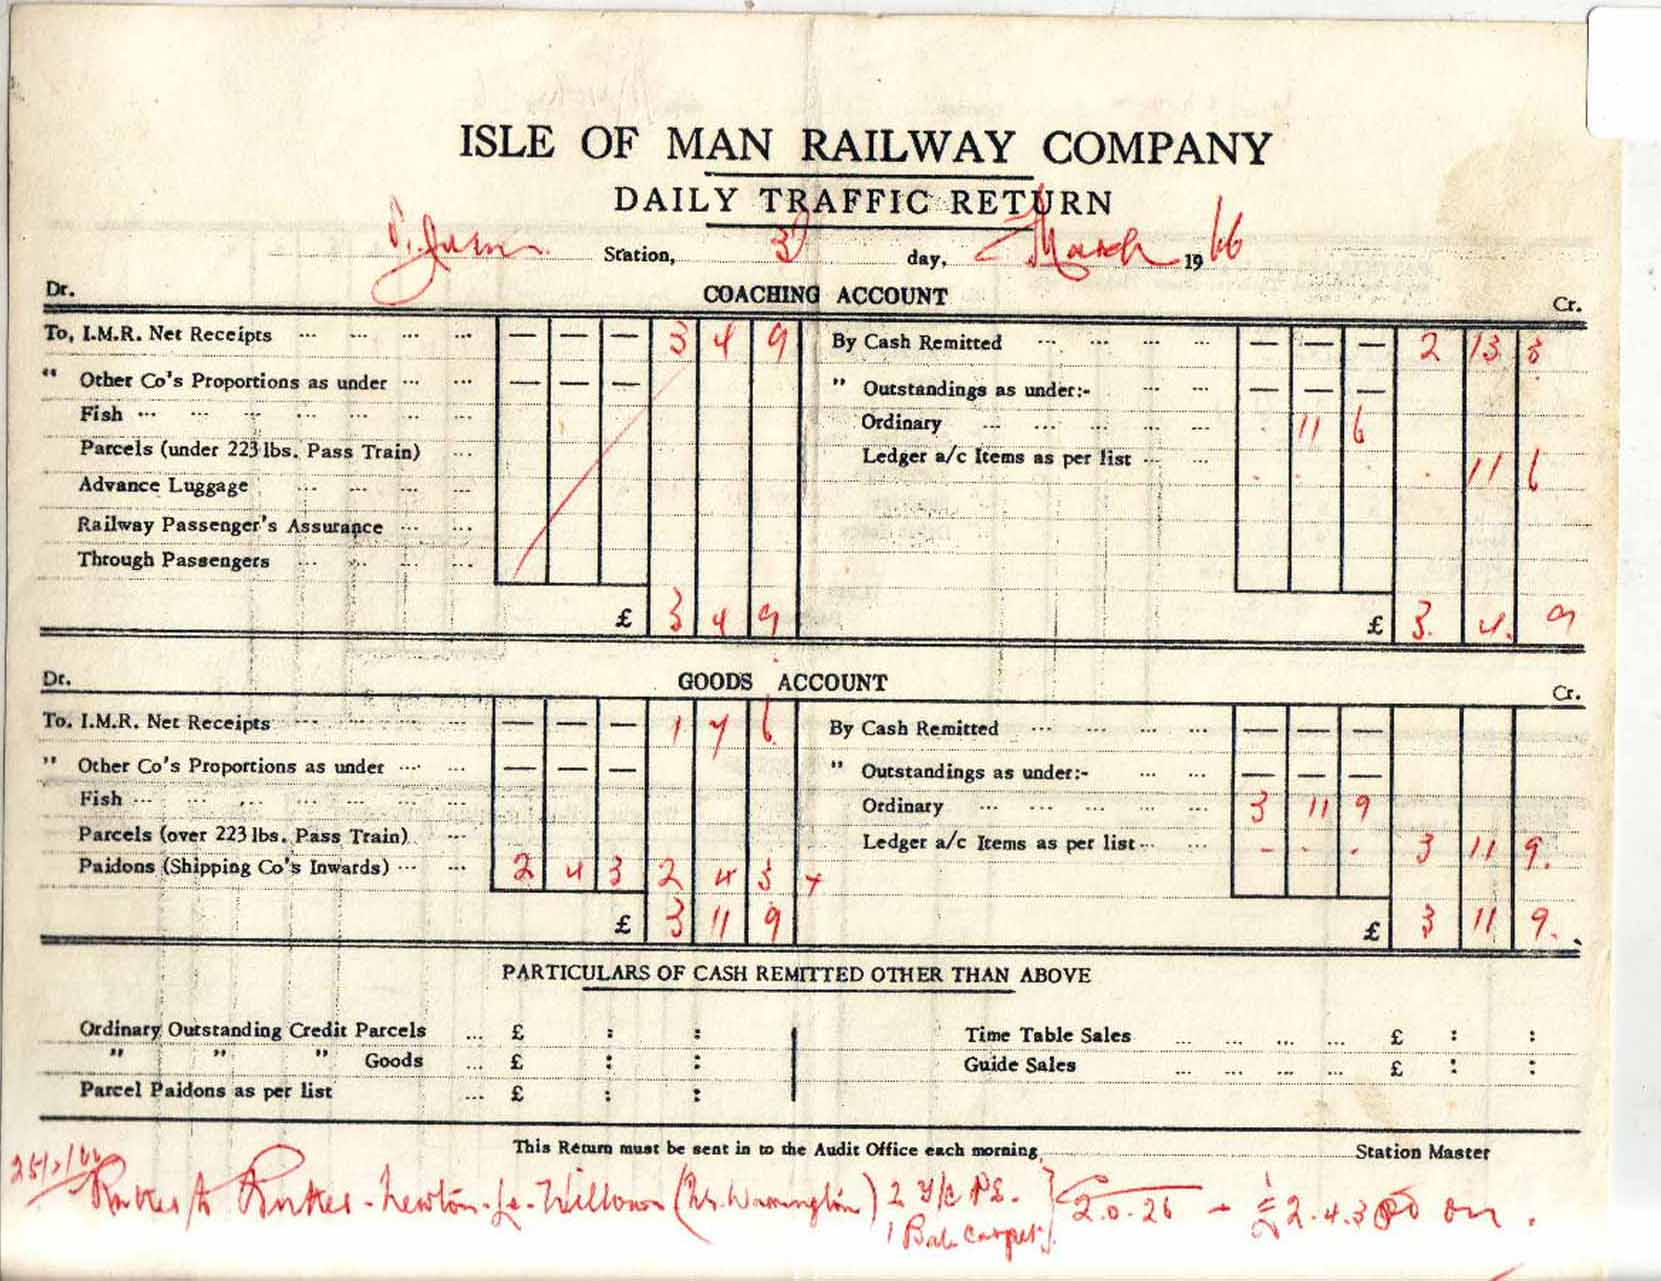 ISLE OF MAN RAILWAY COMPANY
DAILY TRAFFIC RETURN
Station, 3d day, March 1966
Dr. COACHING ACCOUNT Cr.
To, I.M.R. Net Receipts ... — — — 3 4 9 By Cash Remitted ... — — — 2 13 3
" Other Co's Proportions as under ... — — — " Outstandings as under:- ... — — —
Fish ... Ordinary ... 11 6
Parcels (under 223 lbs. Pass Train) ... Ledger a/c Items as per list ... . . . . 11 6
Advance Luggage ...
Railway Passenger's Assurance ...
Through Passengers ...
£ 3 4 9 £ 3. 4. 9
Dr. GOODS ACCOUNT Cr.
To. I.M.R. Net Receipts ... — — — 1 7 6 By Cash Remitted ... — — —
" Other Co's Proportions as under ... — — — " Outstandings as under:- ... — — —
Fish ... Ordinary ... 3 11 9
Parcels (over 223 lbs. Pass Train) ... Ledger a/c Items as per list ... - - . 3 11 9.
Paidons (Shipping Co's Inwards) ... 2 4 3 2 4 3
£ 3 11 9 £ 3 11 9.
PARTICULARS OF CASH REMITTED OTHER THAN ABOVE
Ordinary Outstanding Credit Parcels ... £ : : Time Table Sales ... £ : :
" " " Goods ... £ : : Guide Sales ... £ : :
Parcel Paidons as per list ... £ : :
This Return must be sent in to the Audit Office each morning, Station Master
Newton-Le-Willows (Nr. Warrington) 2 2.0.26 - £2.4.3 Pd on.
1 Bale carpet